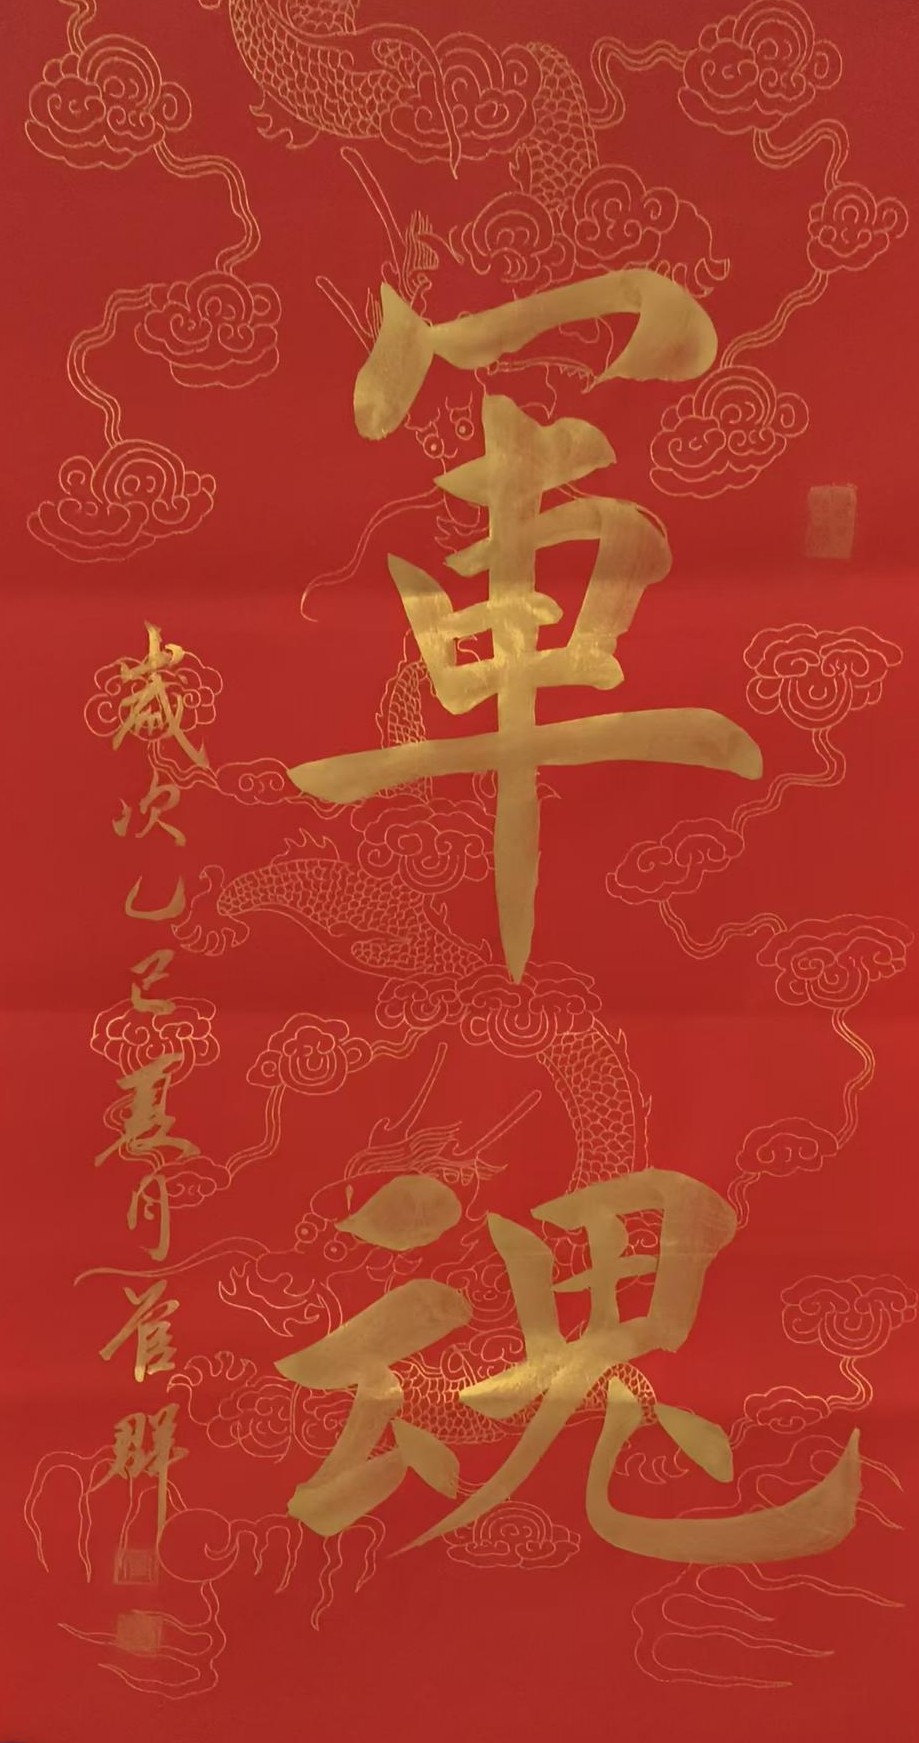 軍魂
歲次乙巳夏月管群